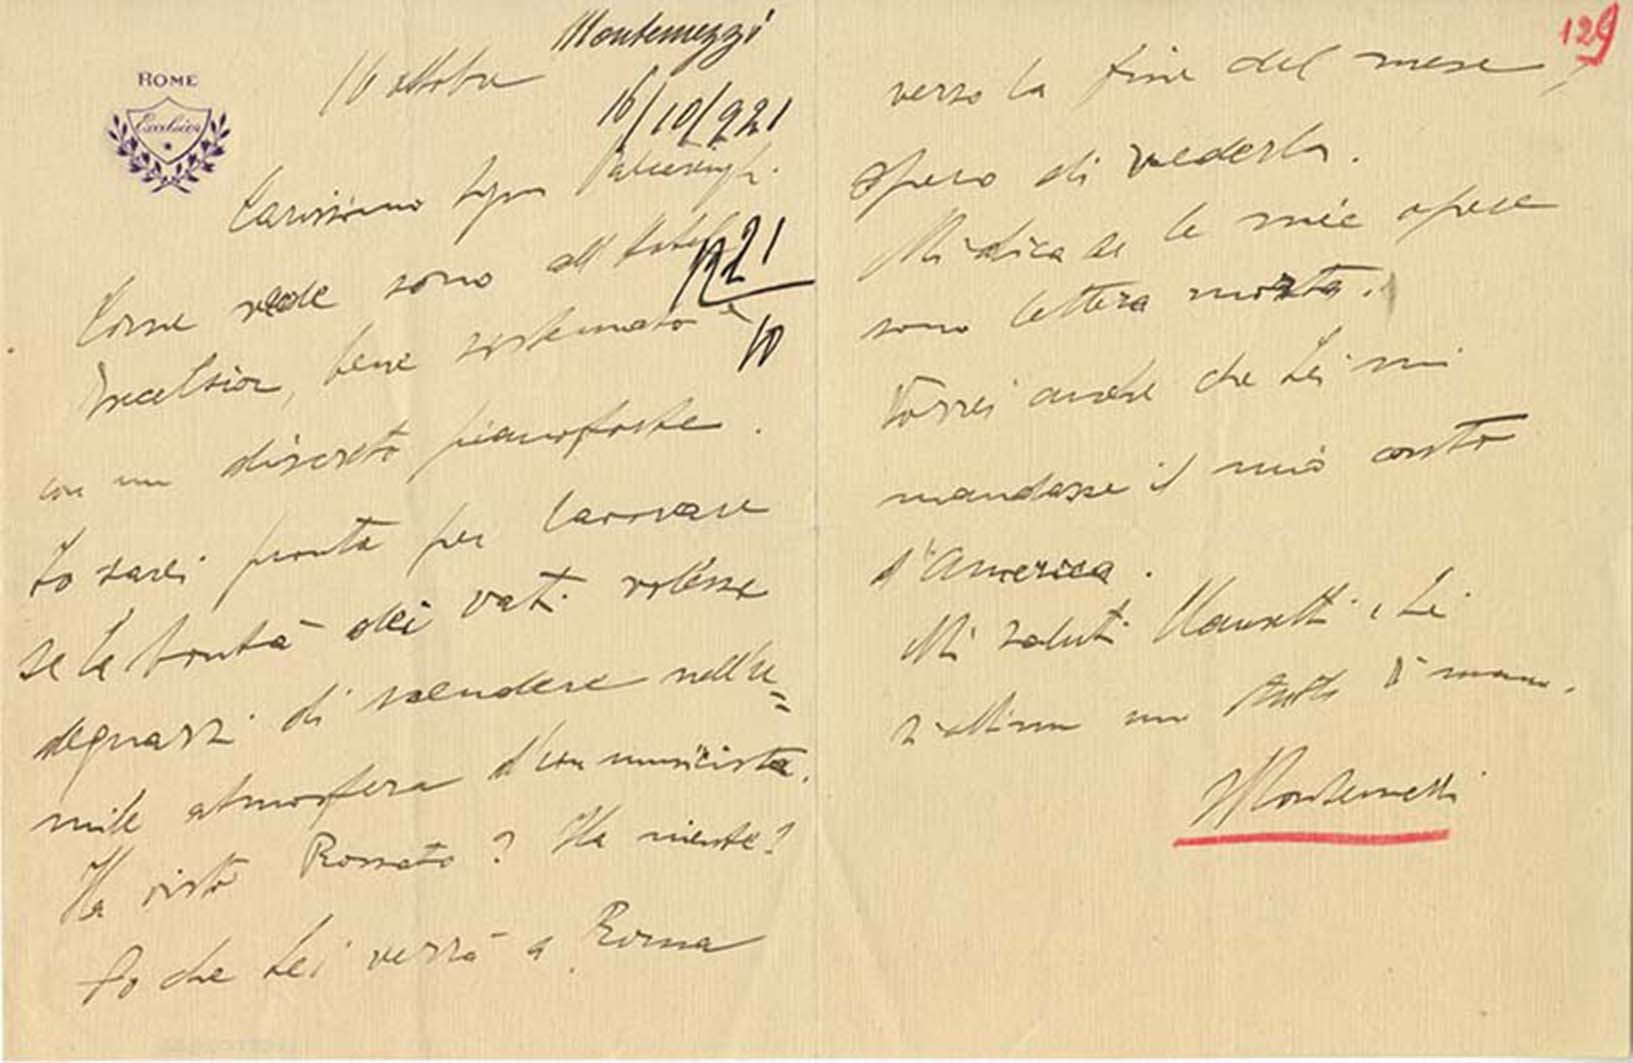 Montemezzi
16/10/921
ROME
Excelsior
16 ottobre
Carissimo Sign
Come vede sono all'Hotel
R 21
10
Excelsior, bene sistemato e
con un discreto pianoforte.
Io sarei pronto per lavorare
se la bontà dei vati volesse
degnarsi di scendere nell'u=
mile atmosfera d'un musicista.
Ha visto Rossato? Ha niente?
So che Lei verrà a Roma
129
verso la fine del mese,
spero di vederla.
Mi dica se le mie opere
sono lettera morta.
Vorrei anche che Lei mi
mandasse il mio conto
d'America.
Mi saluti Clausetti e Lei
una di mano.
Montemezzi